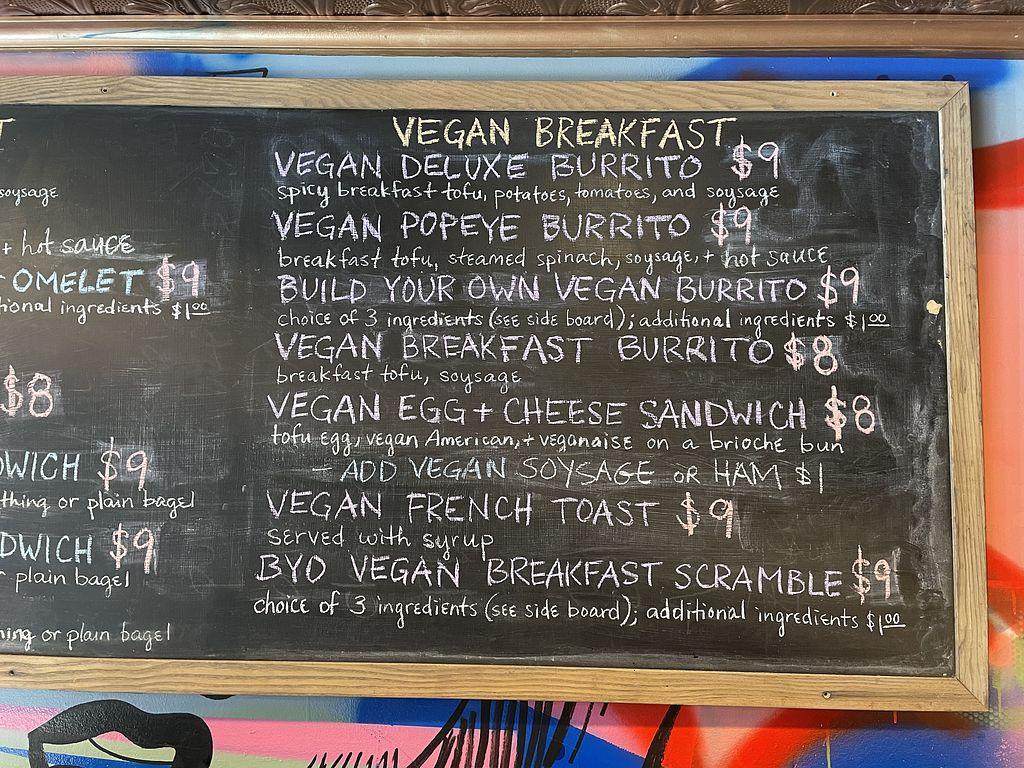 T
soysage
+ hot sauce
OMELET $9
tional ingredients $1.00
$8
DWICH $9
thing or plain bagel
DWICH $9
r plain bagel
hing or plain bagel
VEGAN BREAKFAST
VEGAN DELUXE BURRITO $9
spicy breakfast tofu, potatoes, tomatoes, and soysage
VEGAN POPEYE BURRITO $9
breakfast tofu, steamed spinach, soysage, + hot sauce
BUILD YOUR OWN VEGAN BURRITO $9
choice of 3 ingredients (see side board); additional ingredients $1.00
VEGAN BREAKFAST BURRITO $8
breakfast tofu, soysage
VEGAN EGG + CHEESE SANDWICH $8
tofu egg, vegan American, + veganaise on a brioche bun
- ADD VEGAN SOYSAGE or HAM $1
VEGAN FRENCH TOAST $9
served with syrup
BYO VEGAN BREAKFAST SCRAMBLE $9
choice of 3 ingredients (see side board); additional ingredients $1.00